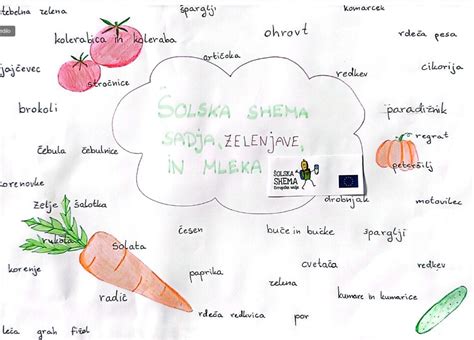 stebelna zelena
šparglji
komarček
kolerabica in koleraba
ohrovt
rdeča pesa
jajčevec
stročnice
artičoka
redkev
cikorija
brokoli
ŠOLSKA SHEMA
SADJA, ZELENJAVE,
IN MLEKA
ŠOLSKA
SHEMA
Evropska unija
paradižnik
regrat
peteršilj
čebula
čebulnice
korenovke
zelje
šalotka
drobnjak
motovilec
rukola
solata
česen
buče in bučke
šparglji
korenje
paprika
cvetača
redkev
zelena
radič
kumare in kumarice
rdeča redkvica
por
leča
grah
fižol